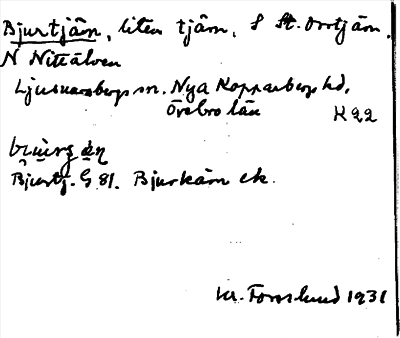 Bjurtjärn, liten tjärn, S St. Orrtjärn,
N Nittälven
Ljusnarsbergs sn. Nya Kopparbergs hd.
Örebro län K22
Bjurtj. G 81. Bjurkärn ek.
Kr. Forslund 1931